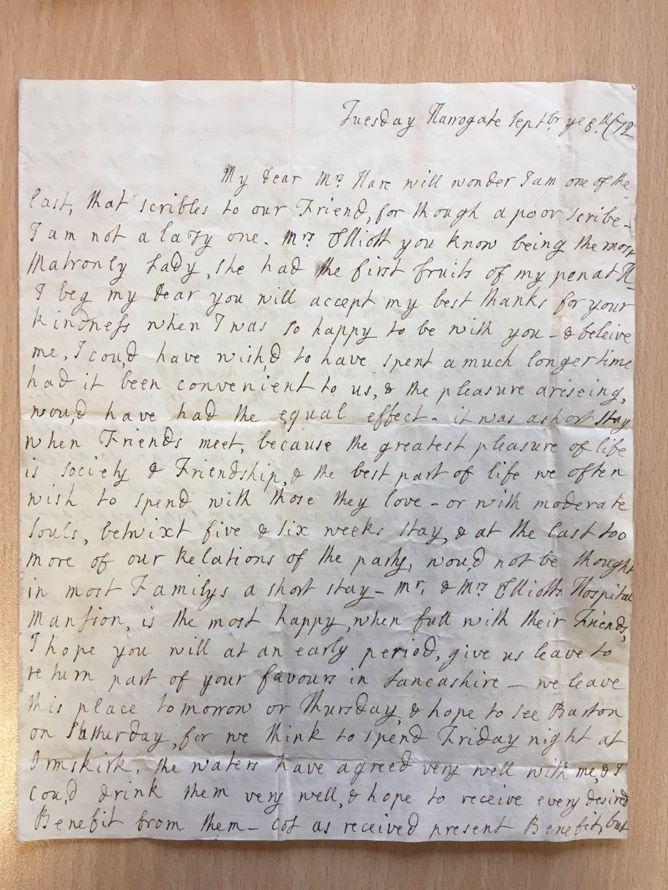 Tuesday Harrogate Septbr ye 8th 172
My Dear Mrs Hare will wonder I am one of the
last, that scribles to our Friend, for though a poor scribe -
I am not a lazy one. Mrs Elliott you know being the most
Matronly Lady, she had the first fruits of my pen at H
I beg my Dear you will accept my best thanks for your
kindness when I was so happy to be with you - & beleive
me, I cou,d have wish,d to have spent a much longer time
had it been convenient to us, & the pleasure ariseing,
wou,d have had the equal effect - it was a short stay
when Friends meet, because the greatest pleasure of life
is society & Friendship, & the best part of life we often
wish to spend with those they love - or with moderate
souls, betwixt five & six weeks stay, & at the last too
more of our Relations of the party, wou,d not be thought
in most Familys a short stay - Mr. & Mrs Elliotts Hospital
Mansion, is the most happy, when full with their Friends,
I hope you will at an early period, give us leave to
return part of your favours in Lancashire - we leave
this place to morrow or Thursday, & hope to see Barton
on Satturday, for we think to spend Friday night at
Ormskirk. the waters have agreed very well with me, & I
cou,d drink them very well, & hope to receive every desired
Benefit from them - Cot as received present Benefit, but